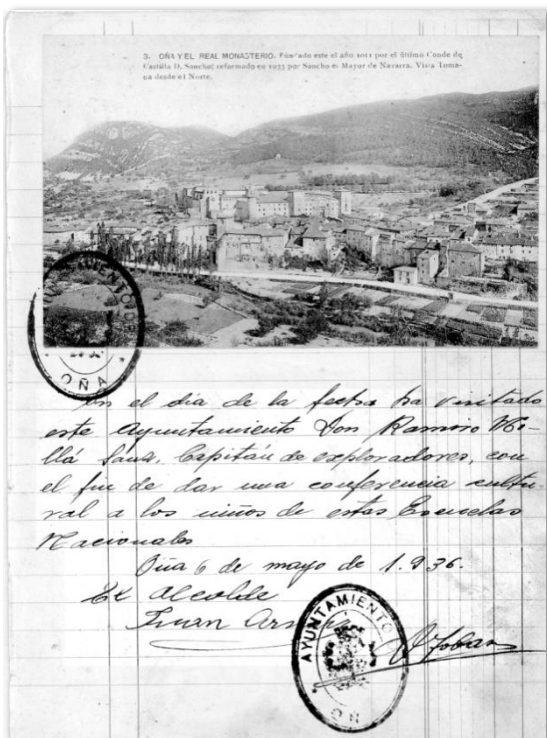 3. OÑA Y EL REAL MONASTERIO. Fundado este el año 1011 por el último Conde de
Castilla D. Sancho; reformado en 1033 por Sancho el Mayor de Navarra. Vista toma-
da desde el Norte.
AYUNTAMIENTO DE
OÑA
En el dia de la fecha ha visitado
este Ayuntamiento Don Ramiro
Sanz, Capitán de exploradores, con
el fin de dar una conferencia cultu-
ral a los niños de estas Escuelas
Nacionales
Oña 6 de mayo de 1.936.
El Alcalde
Juan
AYUNTAMIENTO
OÑ